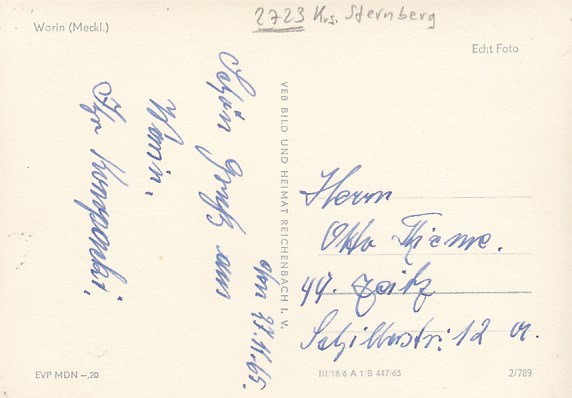 2723 Krs. Sternberg
Warin (Meckl.)
Echt Foto
den 27.11.65.
Schön Gruß aus
Warin.
Ihr
VEB BILD UND HEIMAT REICHENBACH I. V.
Herrn
Otto Thieme.
49. Zeitz
Schillerstr. 12 a.
EVP MDN –,20
III/18/6 A 1/B 447/65
2/789